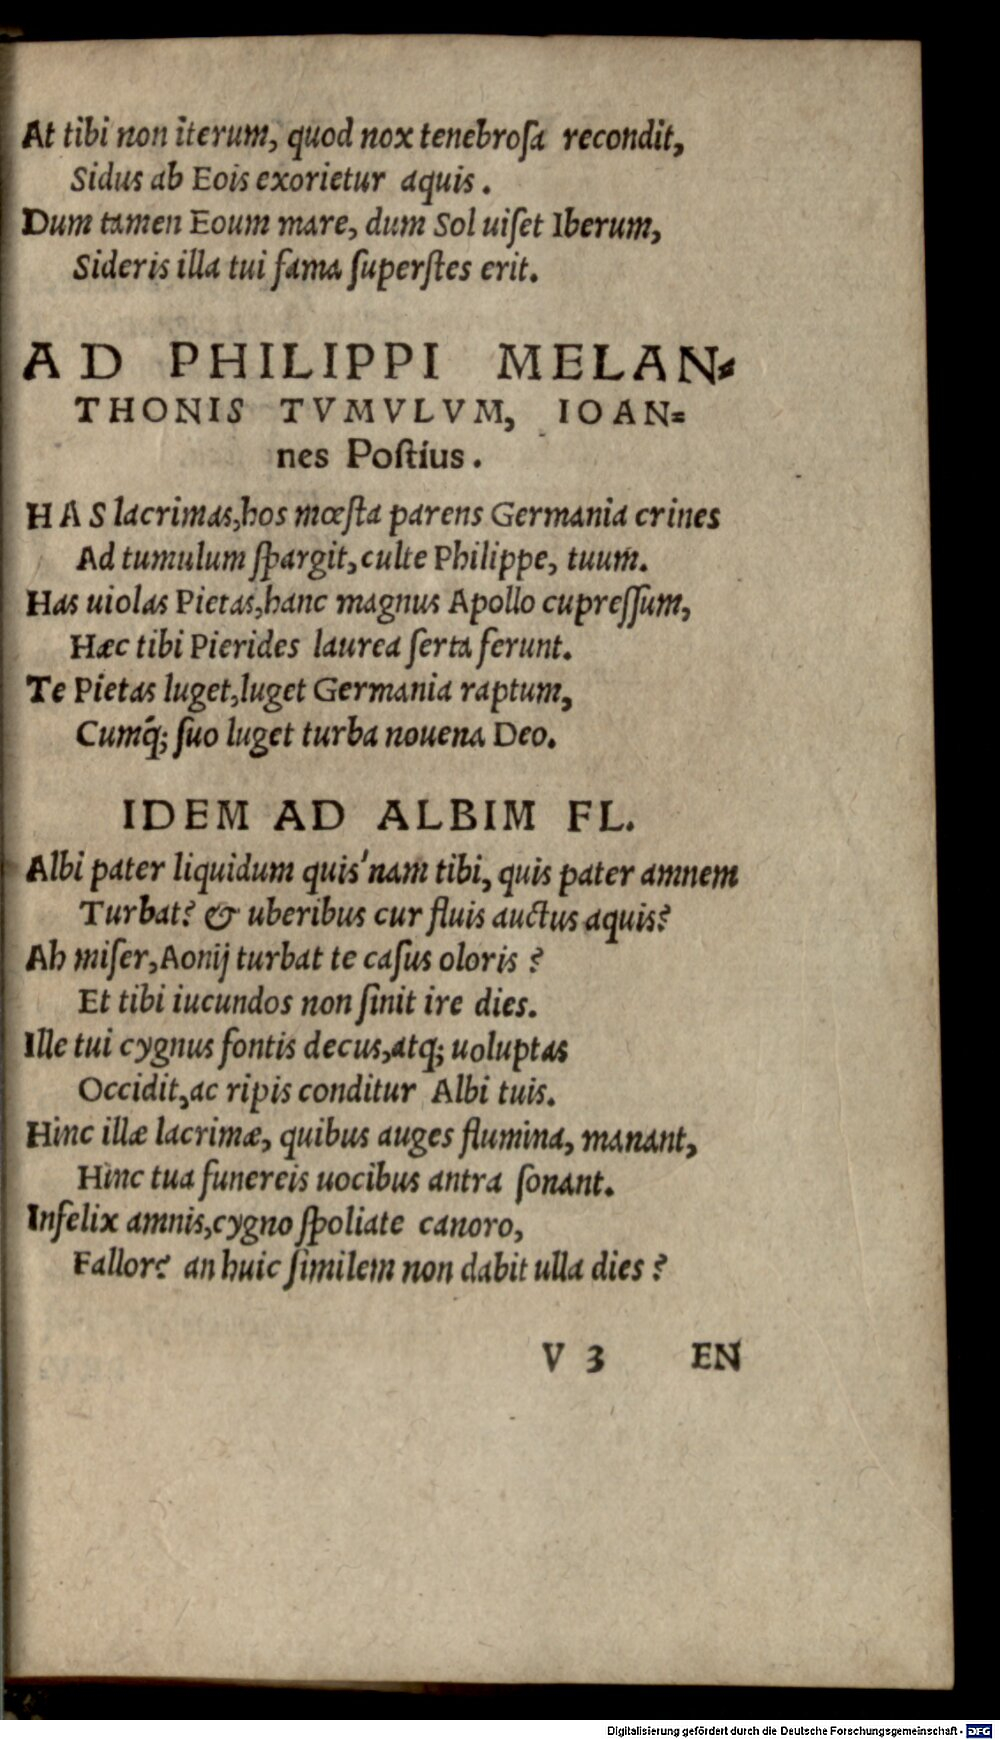 At tibi non iterum, quod nox tenebroſa recondit,
Sidus ab Eois exorietur aquis.
Dum tamen Eoum mare, dum Sol uiſet Iberum,
Sideris illa tui fama ſuperſtes erit.
AD PHILIPPI MELAN⸗
THONIS TVMVLVM, IOAN⸗
nes Poſtius.
HAS lacrimas, hos mœſta parens Germania crines
Ad tumulum ſpargit, culte Philippe, tuum.
Has uiolas Pietas, hanc magnus Apollo cupreſſum,
Hæc tibi Pierides laurea ſerta ferunt.
Te Pietas luget, luget Germania raptum,
Cumq́; ſuo luget turba nouena Deo.
IDEM AD ALBIM FL.
Albi pater liquidum quis'nam tibi, quis pater amnem
Turbat? & uberibus cur fluis auctus aquis?
Ah miſer, Aonij turbat te caſus oloris?
Et tibi iucundos non ſinit ire dies.
Ille tui cygnus fontis decus, atq; uoluptas
Occidit, ac ripis conditur Albi tuis.
Hinc illæ lacrimæ, quibus auges flumina, manant,
Hinc tua funereis uocibus antra ſonant.
Infelix amnis, cygno ſpoliate canoro,
Fallor? an huic ſimilem non dabit ulla dies?
V 3 EN
Digitalisierung gefördert durch die Deutsche Forschungsgemeinschaft - DFG